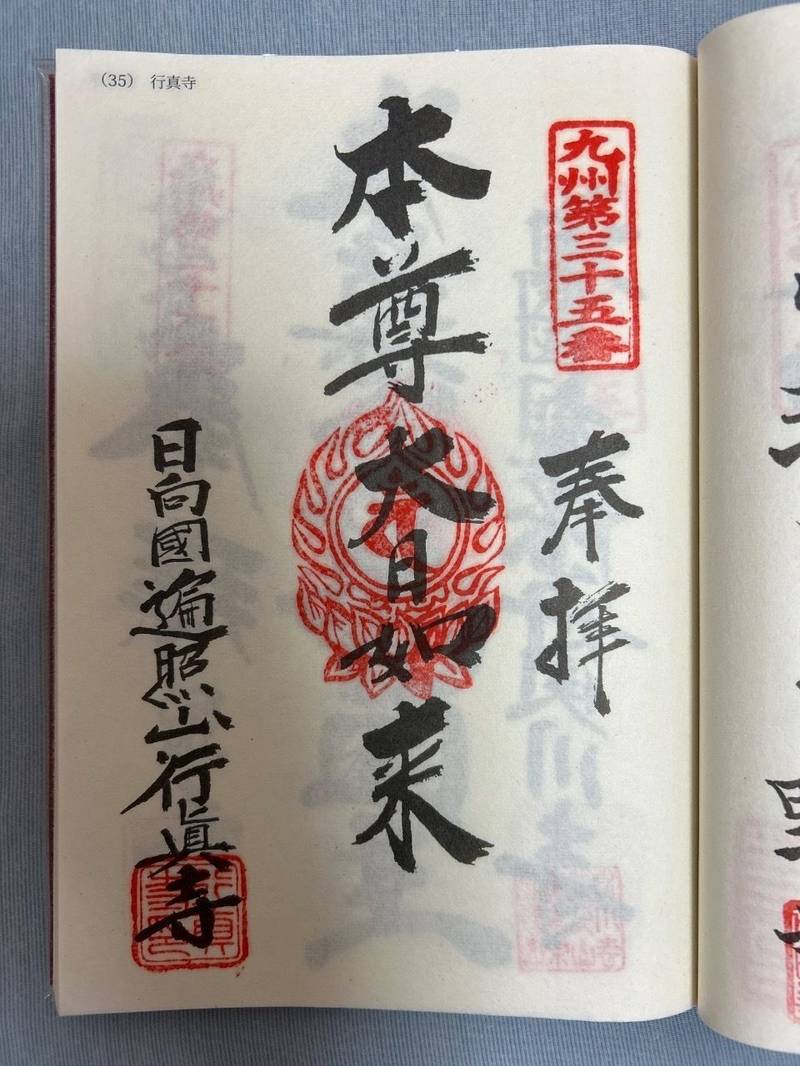 （35） 行真寺
九州第三十五番
奉拝
本尊大日如来
日向國遍照山行眞寺